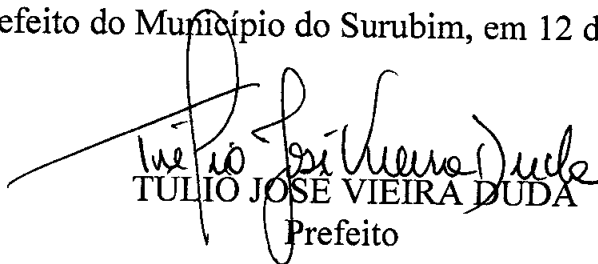 efeito do Município do Surubim, em 12 d
Túlio José Vieira Duda
TULIO JOSÉ VIEIRA DUDA
Prefeito